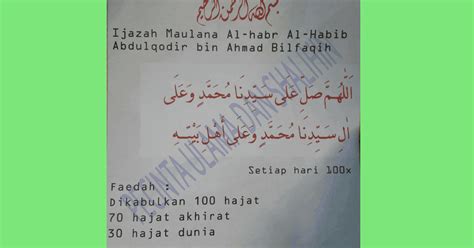 بسم الله الرحمن الرحيم
Ijazah Maulana Al-habr Al-Habib
Abdulqodir bin Ahmad Bilfaqih
اَللّٰهُمَّ صَلِّ عَلَى سَيِّدِنَا مُحَمَّدٍ وَعَلَى
اٰلِ سَيِّدِنَا مُحَمَّدٍ وَعَلَى أَهْلِ بَيْتِهِ
PECINTA ULAMA DAN SHALIHIN
Setiap hari 100x
Faedah :
Dikabulkan 100 hajat
70 hajat akhirat
30 hajat dunia